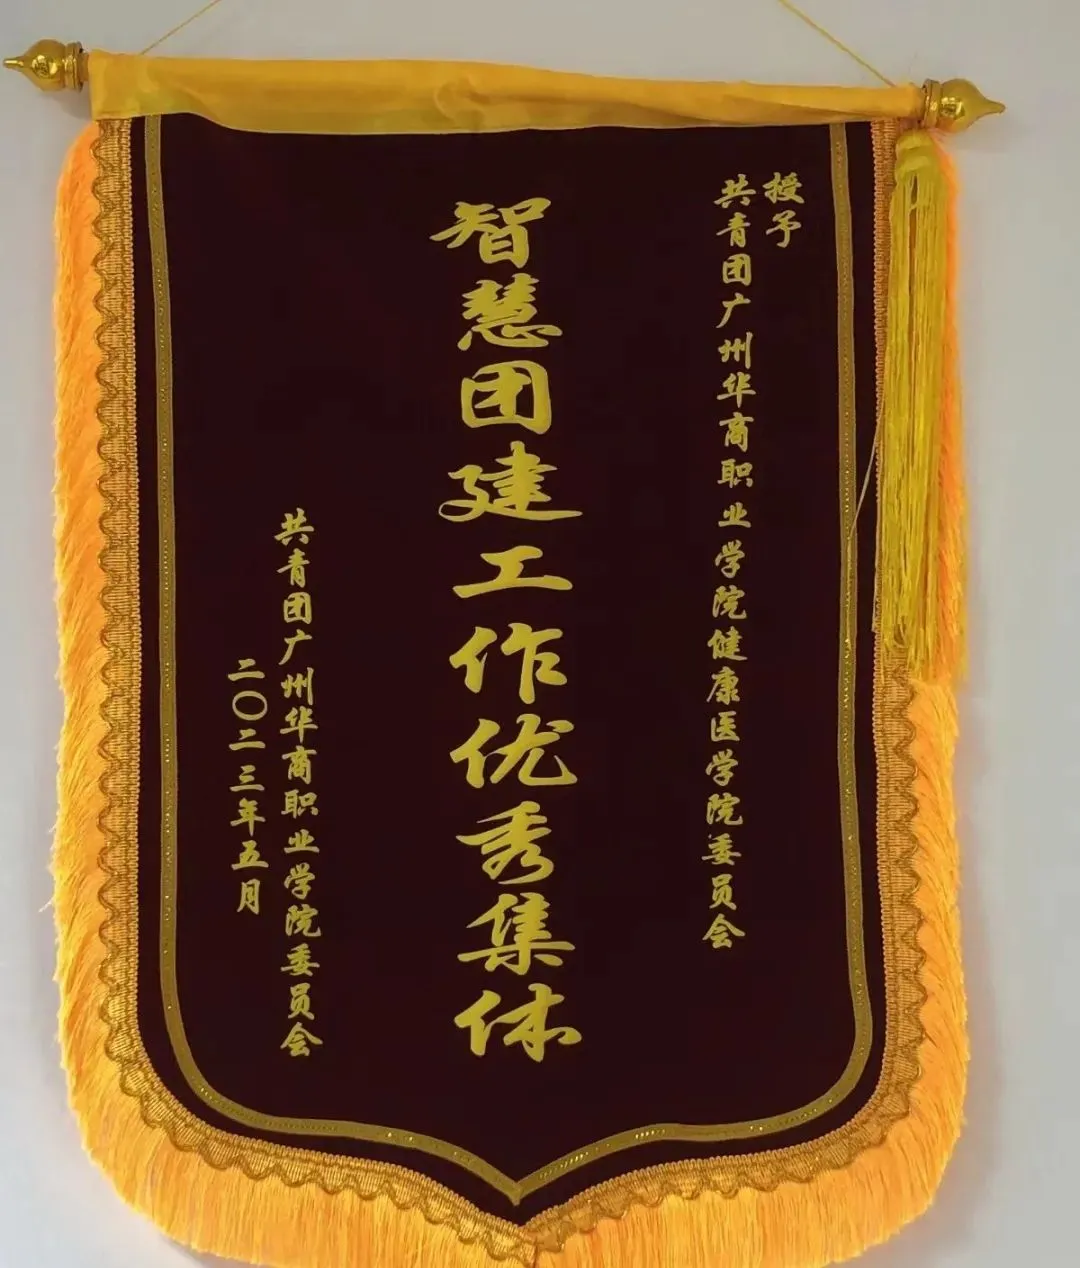 授予
共青团广州华商职业学院健康医学院委员会
智慧团建工作优秀集体
共青团广州华商职业学院委员会
二〇二三年五月